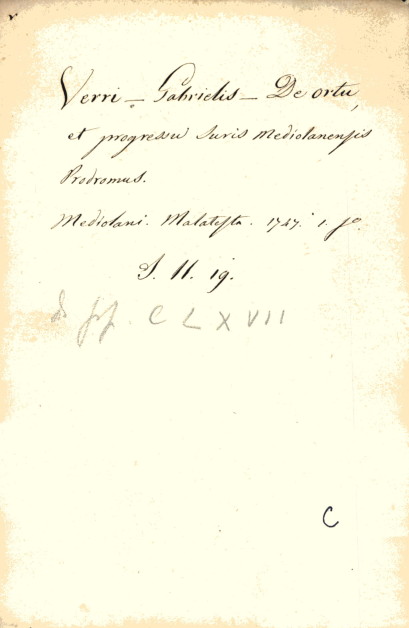 Verri - Gabrielis - De ortu,
et progressu Iuris Mediolanensis
Prodromus.
Mediolani. Malatesta. 1747. 1. fo.
S. 11. 19.
CLXVII
C